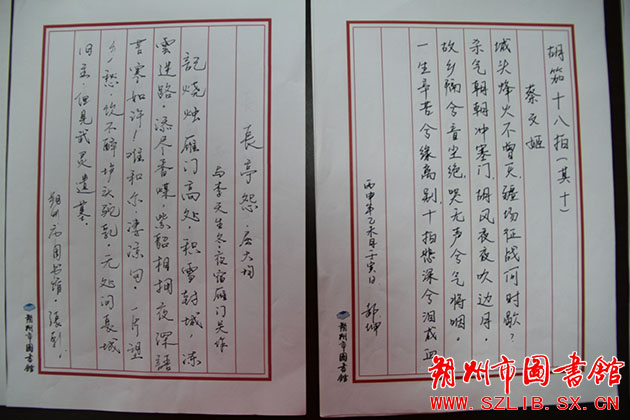 胡笳十八拍（其十）
蔡文姬
城头烽火不曾灭，疆场征战何时歇？
杀气朝朝冲塞门，胡风夜夜吹边月。
故乡隔兮音尘绝，哭无声兮气将咽。
一生辛苦兮缘离别，十拍悲深兮泪成血
丙申年乙未月壬寅日 郭坤
朔州市图書館
長亭怨·屈大均
与李天生冬夜宿雁门关作
記烧烛雁门高处，积雪封城，冻
雲迷路。添尽香煤，紫貂相拥夜深語。
苦寒如许！难和尔，凄凉句。一片望
乡愁，饮不醉垆头驼乳。无处问長城
旧主，但見武灵遗墓。
朔州市图书馆·张
朔州市图書館
朔州市图書館
WWW.SZLIB.SX.CN